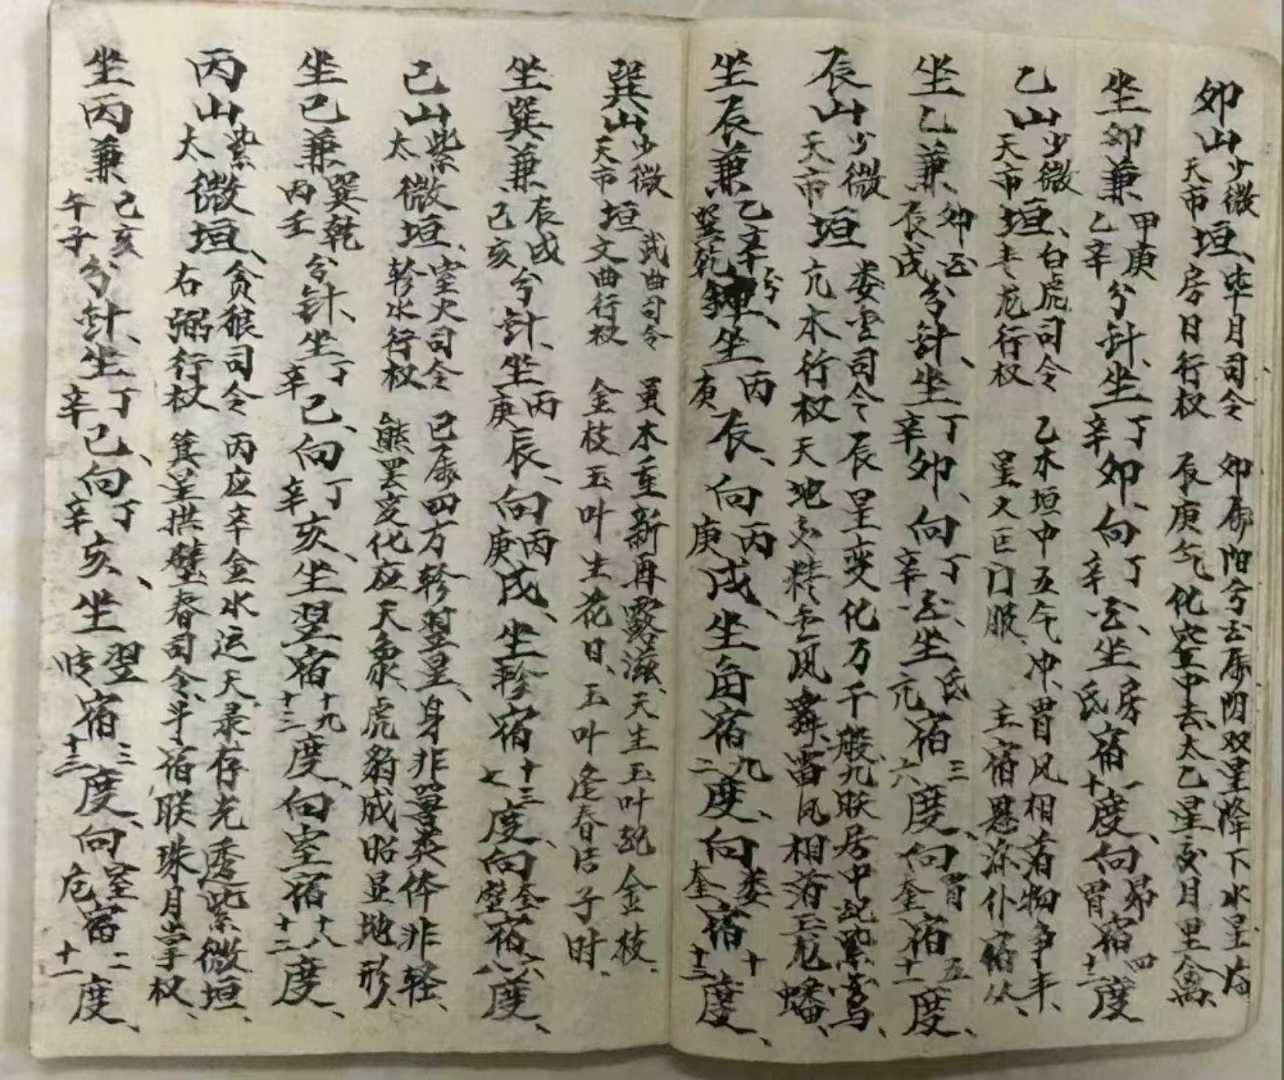 卯山少微天市垣、毕月司令房日行权 卯属阳兮玄属阴双星降下水星
辰庚气化空中去太乙星女月里
坐卯兼甲庚乙辛兮针、坐丁辛卯、向丁辛玄、坐房氏宿一十度、向昴胃宿四十二度
乙山少微天市垣、白虎司令青龙行权 乙木垣中五气冲、胃风相着物争丰、
星火巨门
坐乙兼卯玄辰戌兮针、坐丁辛卯、向丁辛玄、坐氐亢宿三六度、向胃奎宿五十一度、
辰山少微天市垣 娄金司令亢木行权 辰星变化万千般九联居中起紫鸾、
天地交精金凤舞雷风相荡玉龙蟠、
坐辰兼乙辛巽乾兮针、坐丙庚辰、向丙庚戌、坐角宿九二度、向娄奎宿十十三度、
巽山少微天市垣 武曲司令文曲行权 巽木重新再露滋、天生玉叶起金枝、
金枝玉叶生花日、玉叶逢春结子时、
坐巽兼辰戌己亥兮针、坐丙庚辰、向丙庚戌、坐轸宿十三七度、向奎壁宿六八度、
己山紫太微垣、室火司令轸水行权 己属四方轸翌星、身非器英体非轻、
熊罢变化应天象、虎豹成昭显地形、
坐己兼巽乾丙壬兮针、坐丁辛己、向丁辛亥、坐翌宿十九十三度、向室宿十八十二度、
丙山紫太微垣、贪狼司令右弼行权 丙应辛金水运天、录存光透紫微垣、
箕星拱壁春司令、斗宿联珠月掌权、
坐丙兼己亥午子兮针、坐丁辛己、向丁辛亥、坐翌宿三十三度、向室危宿二十一度、